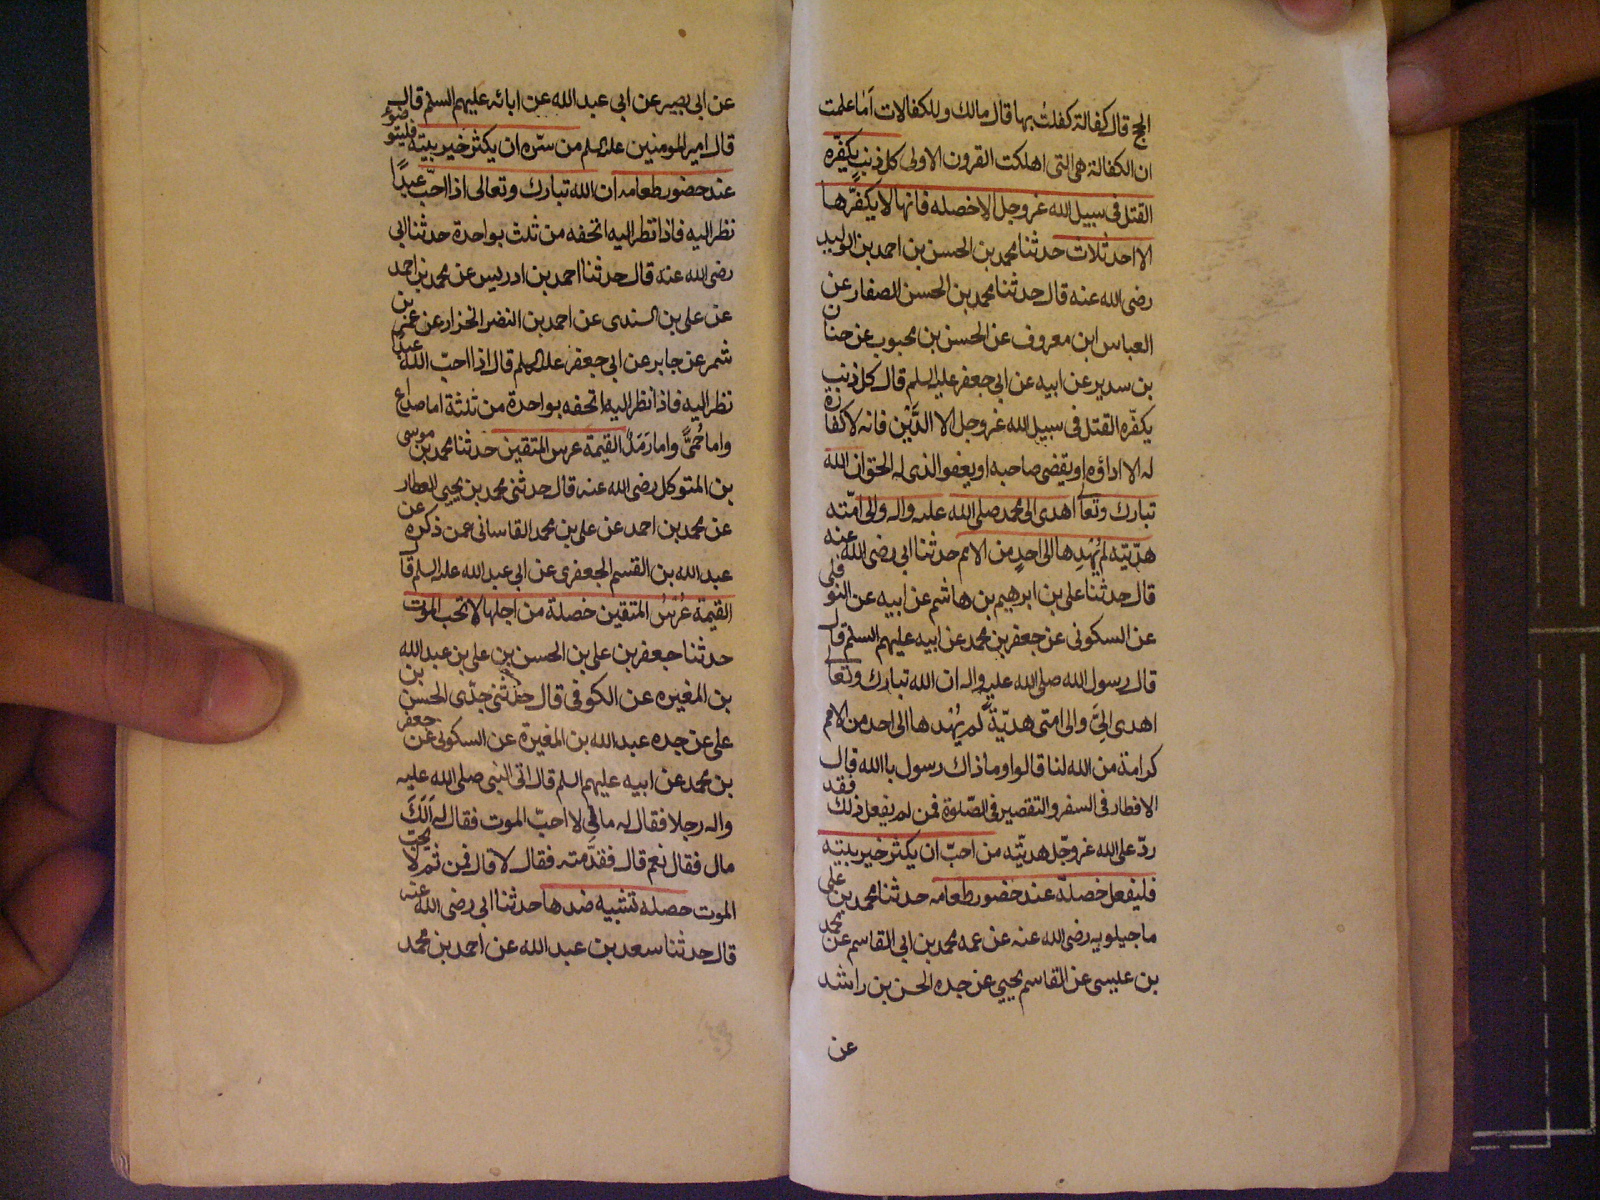 الحج قال كفالة كفلت بها قال مالك وللكفالات اَما علمت
ان الكفالة هى التى اهلكت القرون الاولى كل ذنبٍ يكفّره
القتل فى سبيل الله عزوجل الا خصله فانها لا يكفّرها
الا احد ثلاث حدثنا محمد بن الحسن بن احمد بن الوليد
رضى الله عنه قال حدثنا محمد بن الحسن الصفار عن
العباس ابن معروف عن الحسن بن محبوب عن حنان
بن سدير عن ابيه عن ابى جعفر عليه السلم قال كل ذنب
يكفّره القتل فى سبيل الله عزوجل الا الدَّيْن فانه لا كفارة
له الا اداؤه او يقضى صاحبه او يعفو الذى له الحق ان الله
تبارك وتعا اهدى الى محمد صلى الله عليه واله والى امّته
هديّته لم يُهْدِها الى احدٍ من الامم حدثنا ابى رضى الله عنه
قال حدثنا على بن ابرهيم بن هاشم عن ابيه عن النوفلى
عن السكونى عن جعفر بن محمد عن ابيه عليهم السلم قال
قال رسول الله صلى الله عليه واله ان الله تبارك وتعا
اهدى الىَّ والى امتى هديّةً لم يُهْدها الى احد من الامم
كرامة من الله لنا قالوا وما ذاك رسول يا الله قال
الافطار فى السفر والتقصير فى الصّلوة فمن لم يفعل ذلك فقد
ردّ على الله عزوجّل هديّته من احبّ ان يكثر خير بيته
فليفعل خصلة عند حضور طعامه حدثنا محمد بن على
ماجيلويه رضى الله عنه عن عمه محمد بن ابى القاسم عن محمد
بن عيسى عن القاسم يحيى عن جده الحسن بن راشد
عن
عن ابى بصير عن ابى عبد الله عن ابائه عليهم السلم قال
قال امير المومنين عليه السلم من سّره ان يكثر خير بيته فليتوضؤ
عند حضور طعامه ان الله تبارك وتعالى اذا احبّ عبدًا
نظر اليه فاذا نظر اليه اتحفه من ثلث بواحدة حدثنا ابى
رضى الله عنه قال حدثنا احمد بن ادريس عن محمد بن احمد
عن على بن السندى عن احمد بن النضر الخزار عن عمرو بن
شمر عن جابر عن ابى جعفر عليه السلم قال اذا احبّ الله عبدًا
نظر اليه فاذا نظر اليه اتحفه بواحدة من ثلثة اما صداع
واما حُمىًّ واما رَمَدٌ القيمة عرس المتقين حدثنا محمد بن موسى
بن المتوكل رضى الله عنه قال حدثنى محمد بن يحيى العطار
عن محمد بن احمد عن على بن محمد القاسانى عمن ذكره عن
عبد الله بن القسم الجعفرى عن ابى عبد الله عليه السلم قال
القيمة عُرْسُ المتقين خصلة من اجلها لا تحب الموت
حدثنا جعفر بن على بن الحسن بن على بن عبد الله
بن المغيره عن الكوفى قال حدثنى جدّى الحسن بن
على عن جده عبد الله بن المغيرة عن السكونى عن جعفر
بن محمد عن ابيه عليهم السلم قال اتى النبى صلى الله عليه
واله رجلا فقال له مالِى لا احبّ الموت فقال له اَلَكَ
مال فقال نعم قال فقدّمته فقال لا قال فمن ثم لا تحبّ
الموت حصله تشبيه ضدها حدثنا ابى رضى الله عنه
قال حدثنا سعد بن عبد الله عن احمد بن محمد